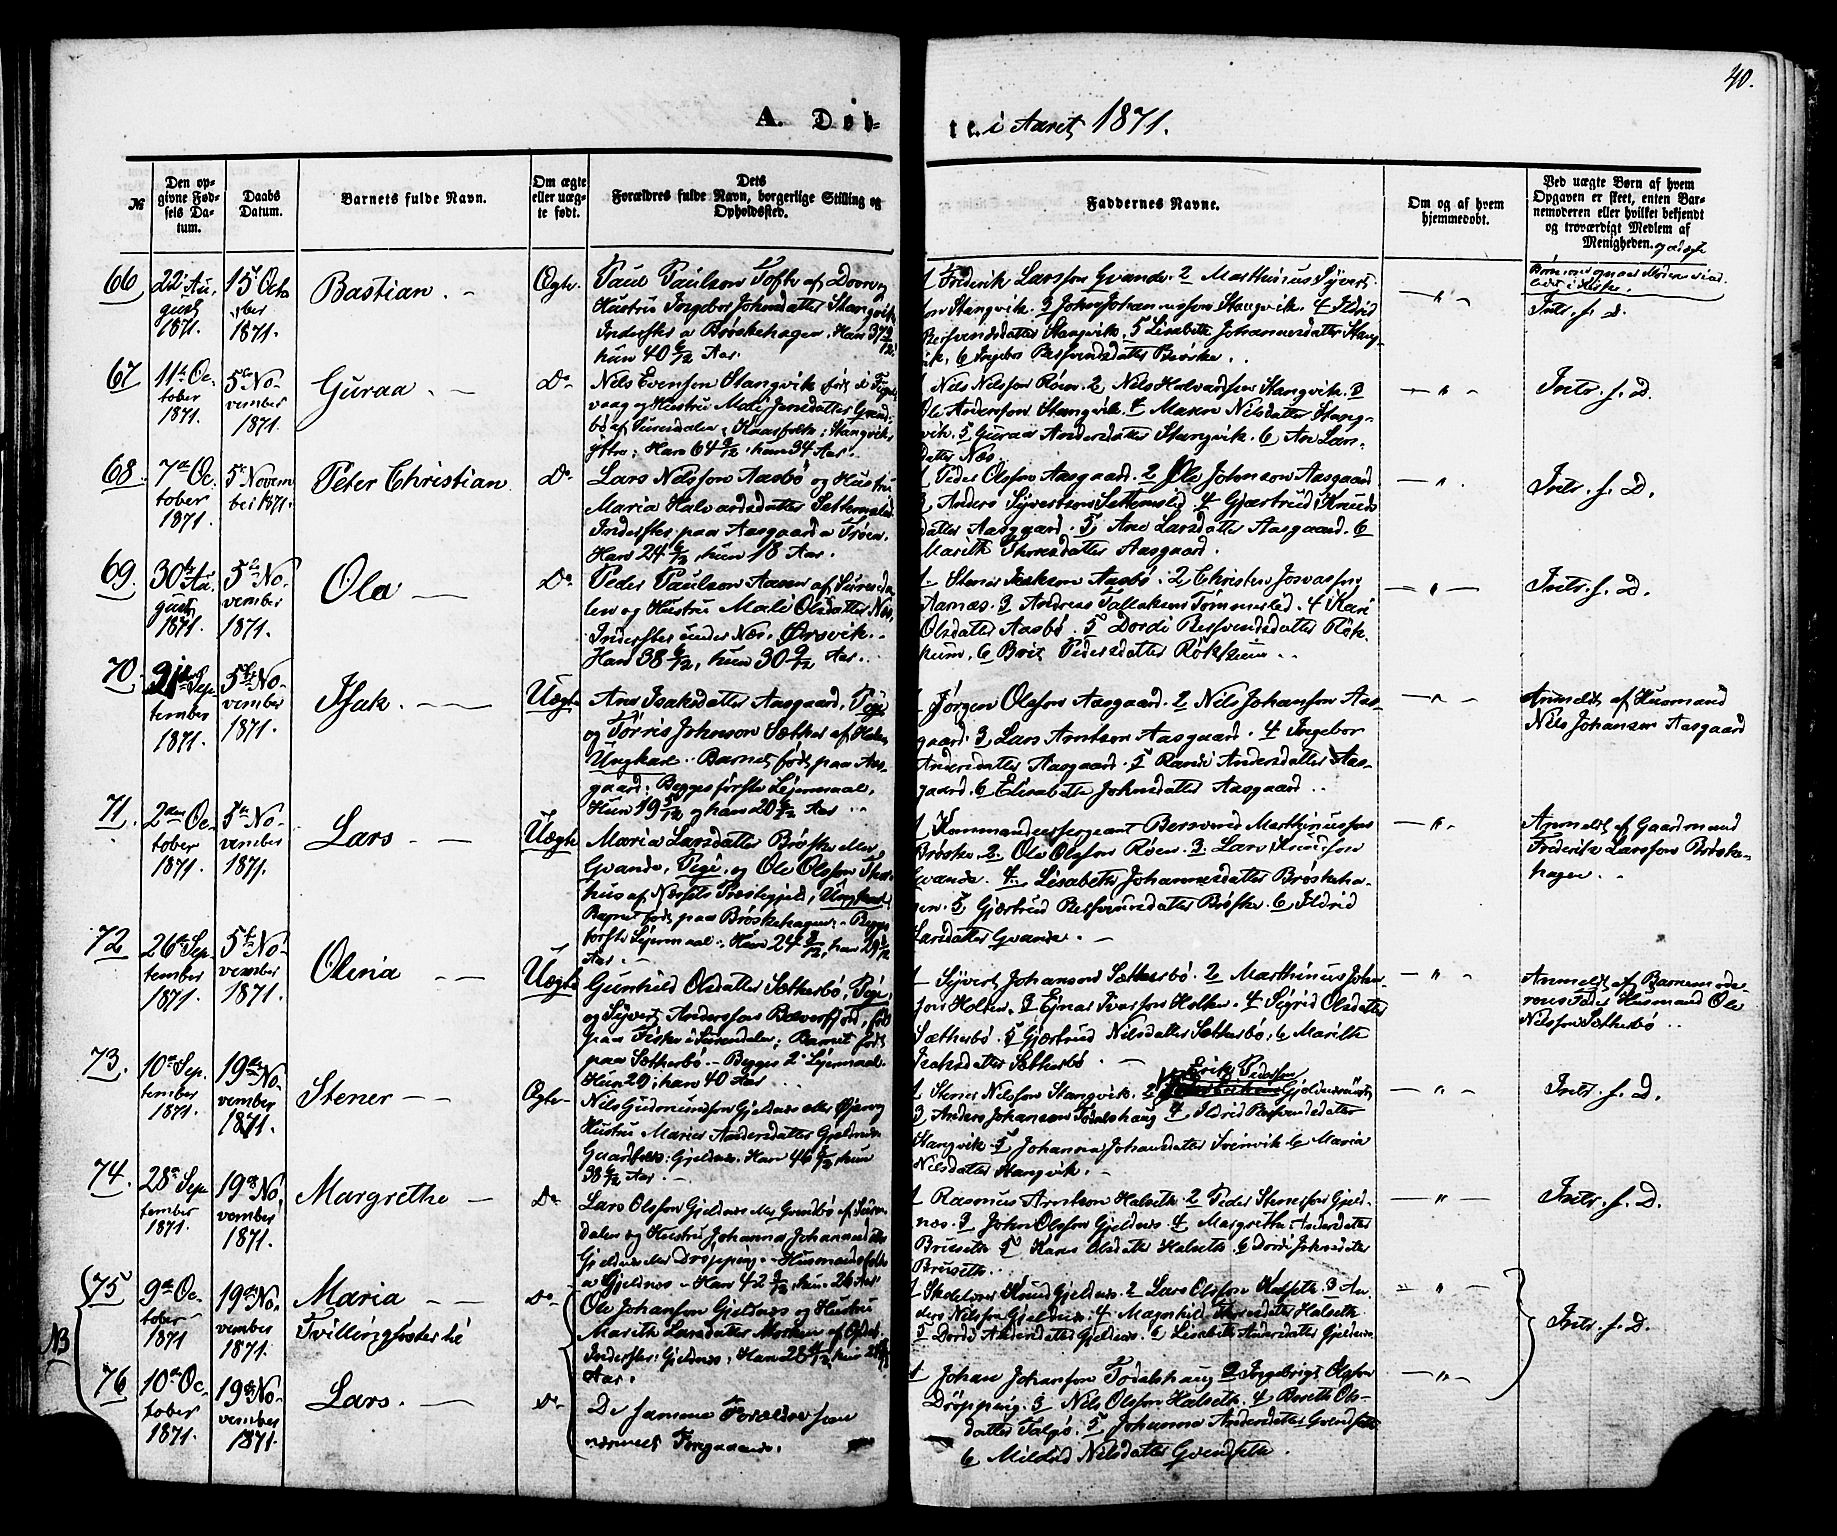 40.
A. Døb-
te. i Aaret 1871.
№
Den op-
givne Fød-
sels Da-
tum.
Daabs
Datum.
Barnets fulde Navn.
Om ægte
eller uæg-
te født.
Dets
Forældres fulde Navn, borgerlige Stilling og
Opholdssted.
Faddernes Navne.
Om og af hvem
hjemmedøbt.
Ved uægte Børn af hvem
Opgaven er skeet, enten Bar-
nemoderen eller hvilket bekjendt
og troværdigt Medlem af
Menigheden.
66
22 Au-
gust
1871.
15 Octo
ber
1871.
Bastian.
Ægte.
Paul Paulson Tofte af
Hustru Ingebor Johnsdatter Stangvik
Inderster a Brøskehagen. Han 37
hun 40 6/12 Aar.
1 Frederik Larsson Gvande. 2 Marthinus Syvert
son Stangvik. 3 John Johannesson Stangvik. 4 Ildrid
Besvendsdatter Stangvik. 5 Lisabeth Johannesdatter Stang-
vik, 6 Ingebor Besvendsdatter Brøske.
Intr. f. D.
67
11te Oc-
tober
1871.
5te No-
vember
1871.
Guraa
Do
Nils Evenson Stangvik født i
vaag og Hustru Mali Jensdatter
af Surendalen, Huusfolk: Stangvik
yttre: Han 64 , hun 34 Aar.
1 Nils Nilsson Røen. 2 Nils Halvardson Stangvik. 3
Ole Anderson Stangvik. 4 Maren Nilsdatter Stang-
vik. 5 Guraa Andersdatter Stangvik. 6 An Lars-
datter Næs.
Intr. f. D.
68.
7de Oc-
tober
1871.
5te Novem
ber 1871.
Peter Christian
Do
Lars Nilsson Aasbø og Hustru
Maria Halvardsdatter Settemslid
Inderster paa Aasgaard a Trøen.
Han 24 6/12, hun 18 Aar.
1 Peder Olsson Aasgaard. 2 Ole Johnson Aasgaard
3 Anders Syvertson Settemslid 4 Gjærtrud Knuds
datter Aasgaard. 5 Ane Larsdatter Aasgaard. 6
Marith Thoresdatter Aasgaard.
Intr. f. D.
69.
30te Au-
gust
1871.
5te No-
vember
1871.
Ola
Do
Peder Paulson Aasen af Surenda-
len og Hustru Mali Olsdatter Næs,
Inderster under Næs. Ørsvik.
Han 38 6/12, hun 30 9/12 Aar.
1. Stener Isakson Aasbø. 2 Christen Josvason
Aarnæs. 3 Andreas Tallakson Tømmerlid. 4 Kari
Olsdatter Aasbø. 5 Dordi Besvendsdatter Røk-
kum, 6 Brit Pedersdatter Røkkum.
Intr. f. D.
70.
21de Sep-
tember
1871.
5te No-
vember
1871.
Isak.
Uægte
Ane Isaksdatter Aasgaard, Pige
og Tørris Johnson Sæther af Halse,
Ungkarl. Barnet født paa Aas-
gaard: Begges første Leiermaal,
Hun 19 5/12 og han 20 6/12 Aar
1 Jørgen Olsson Aasgaard. 2 Nils Johanson Aas-
gaard. 3 Lars Arntson Aasgaard. 4 Ingebor
Andersdatter Aasgaard. 5 Randi Andersdatter Aas-
gaard. 6 Elisabeth Johnsdatter Aasgaard
Anmeldt af Husmand
Nils Johanson Aasgaard
71.
2den Oc-
tober
1871.
5te No-
vember
1871.
Lars
Uægte
Maria Larsdatter Brøske eller
Gvande, Pige, og Ole Olsson
hus af Næssets Præstegjeld, Ungkarl
Barnet født paa Brøskehagen. Begges
første Leiermaal: Hun 24 , han 29
Aar.
1 Kommandeersergeant Bersvend Marthinusson
Brøske. 2. Ole Olsson Røen. 3 Lars Knudson
Gvande. 4. Lisabeth Johannesdatter Brøskeha-
gen. 5 Gjærtrud Besvendsdatter Brøske. 6 Ildrid
Larsdatter Gvande.
Anmeldt af Gaardmand
Frederik Larsson Brøske-
hagen.
72
26de Sep-
tember
1871.
5te No-
vember
1871.
Olina
Uægte
Gunhild Olsdatter Sætherbø, Pige,
og Syvert Anderson Bæverfjord, født
paa Fiske i Surendalen; Barnet født
paa Sætherbø. Begges 2 Leiermaal.
Hun 29; han 40 Aar
1 Syvert Johanson Sætherbø. 2 Marthinus Johan-
son Holten. 3 Ejnar Ivarson Holten. 4 Sigrid Olsdatter
Sætherbø. 5 Gjærtrud Nilsdatter Sætherbø; 6 Marith
Isaksdatter Sætherbø.
Anmeldt af Barnemode-
rens Fader Husmand Ole
Nilsson Sætherbø.
73.
10de Sep.
tember
1871.
19de No-
vember
1871.
Stener
Ægte
Nils Gudmundson Gjeldnes eller Øjen og
Hustru Marie Andersdatter Gjeldnes
Gaardfolk: Gjeldnes. Han 46 , hun
38 6/12 Aar.
1 Stener Nilsson Stangvik. 2 Erik Pederson Gjeldnes
3 Anders Johanson Todalshaug 4 Ildrid Besvendsdatter
Stangvik. 5 Johanna Johansdatter Svinvik 6 Maria
Nilsdatter Stangvik.
Intr. f. D.
74.
28de Sep-
tember
1871.
19de No-
vember
1871.
Margrethe
Do
Lars Olsson Gjeldnes eller Grindbø af Suren-
dalen og Hustru Johanna Johannesdatter
Gjeldnes eller Drøpping. Husmandsfolk
a Gjeldnes. Han 42 , hun 26 Aar
1 Rasmus Arntson Halseth. 2 Peder Stenerson Gjeld-
næs. 3 John Olsson Gjeldnes. 4 Margretha Andersdatter
Bruseth. 5 Karen Olsdatter Halseth. 6 Dordi Johnsdatter
Bruseth.
Intr. f. D.
NB
75
9de Oc-
tober
1871
19de No-
vember
1871.
Maria
Tvillingfoster til
Do
Ole Johanson Gjeldnæs og Hustru
Marith Larsdatter Morken af
Inderster: Gjeldnes; Han 28 , hun 28
Aar.
1 Skolelærer Knud Gjeldnes. 2 Lars Olsson Halseth. 3 An-
ders Nilsson Gjeldnes. 4. Magnhild Thoresdatter Halseth.
5 Dordi Andersdatter Gjeldnes. 6 Lisabeth Andersdatter Gjeldnes.
Intr. f. D.
76
10de Oc-
tober
1871.
19de No-
vember
1871.
Lars.
Do
De samme Forældre som
nærmest Foregaaende.
1 Johan Johanson Todalshaug 2 Ingebrigt Olsson
Drøpping. 3 Nils Olsson Halseth. 4 Bereth Ols-
datter Talgø. 5 Johanna Andersdatter Gvendseth
6 Mildrid Nilsdatter Gvendseth.